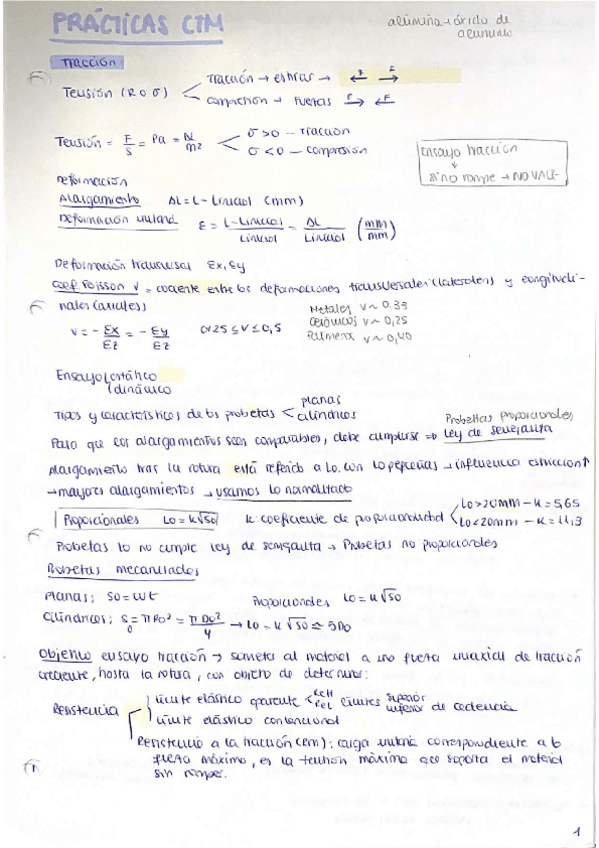 PRÁCTICAS CTM
alúmina → óxido de aluminio
TRACCIÓN
Tensión (R o σ)
Tracción → estirar → F E
Compresión → Fuerzas F F
Tensión = F/S = Pa = N/m²
σ>0 – Tracción
σ<0 – compresión
Ensayo tracción
↓
si no rompe → NO VALE
Deformación
Alargamiento ΔL = L - Linicial (mm)
Deformación unitaria ε = L-Linicial/Linicial = ΔL/Linicial (mm/mm)
Deformación transversal εx, εy
Coef Poisson ν = cociente entre las deformaciones transversales (laterales) y longitudi-
nales (axiales)
ν = - εx/εz = - εy/εz
0,25 ≤ ν ≤ 0,5
Metales ν ~ 0,33
Cerámicos ν ~ 0,25
Polímeros ν ~ 0,40
Ensayo (estático
(dinámico
Tipos y características de las probetas < planas
cilíndricas
Probetas proporcionales
Para que los alargamientos sean comparables, debe cumplirse ⇒ Ley de semejanza
Alargamiento tras la rotura está referido a Lo. con Lo pequeñas → influencia estricción↑
→ mayores alargamientos → usamos Lo normalizado
Proporcionales Lo = K√So
K: coeficiente de proporcionalidad
Lo>20mm - K = 5,65
Lo<20mm - K = 11,3
Probetas Lo no cumple Ley de semejanza → Probetas no proporcionales
Probetas mecanizadas
Planas: So = wt
Proporcionales Lo = K√So
Cilíndricas: So = πRo² = πDo²/4 → Lo = K√So ≃ 5Do
Objetivo ensayo tracción → someter al material a una fuerza uniaxial de tracción
creciente, hasta la rotura, con objeto de determinar:
Resistencia
límite elástico aparente < ReH ReL límites superior inferior de cedencia
límite elástico convencional
Resistencia a la tracción (Rm): carga unitaria correspondiente a la
fuerza máxima, es la tensión máxima que soporta el material
sin romper.
1